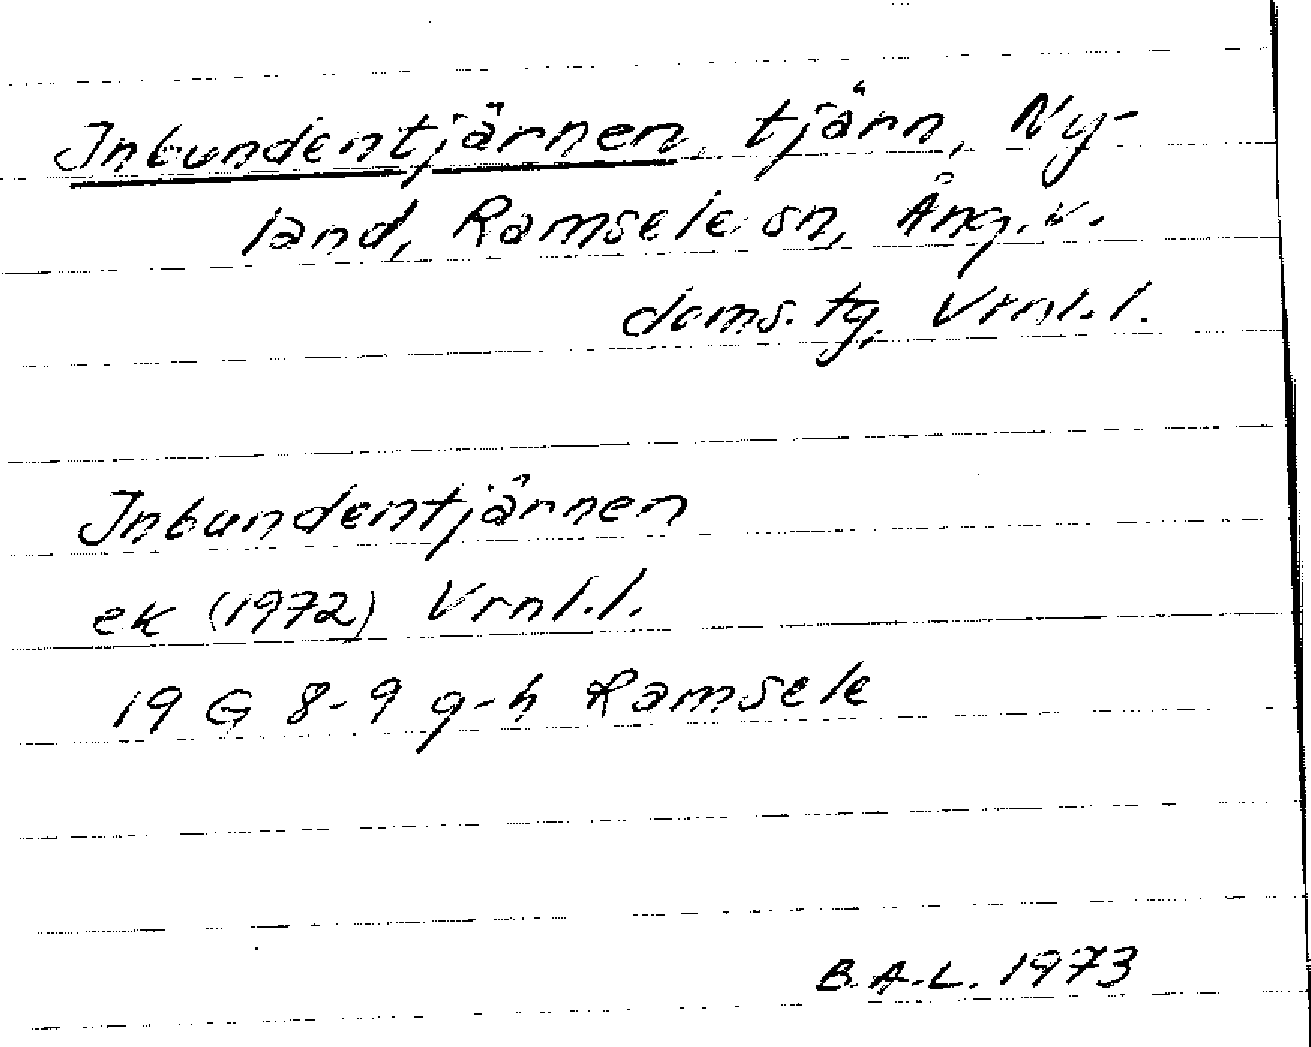 Inbundentjärnen, tjärn, Ny-
land, Ramsele sn, Ång. v.
doms. tg, Vrnl. l.
Inbundentjärnen
ek (1972) Vrnl. l.
19 G 8-9 g-h Ramsele
B.A.L. 1973